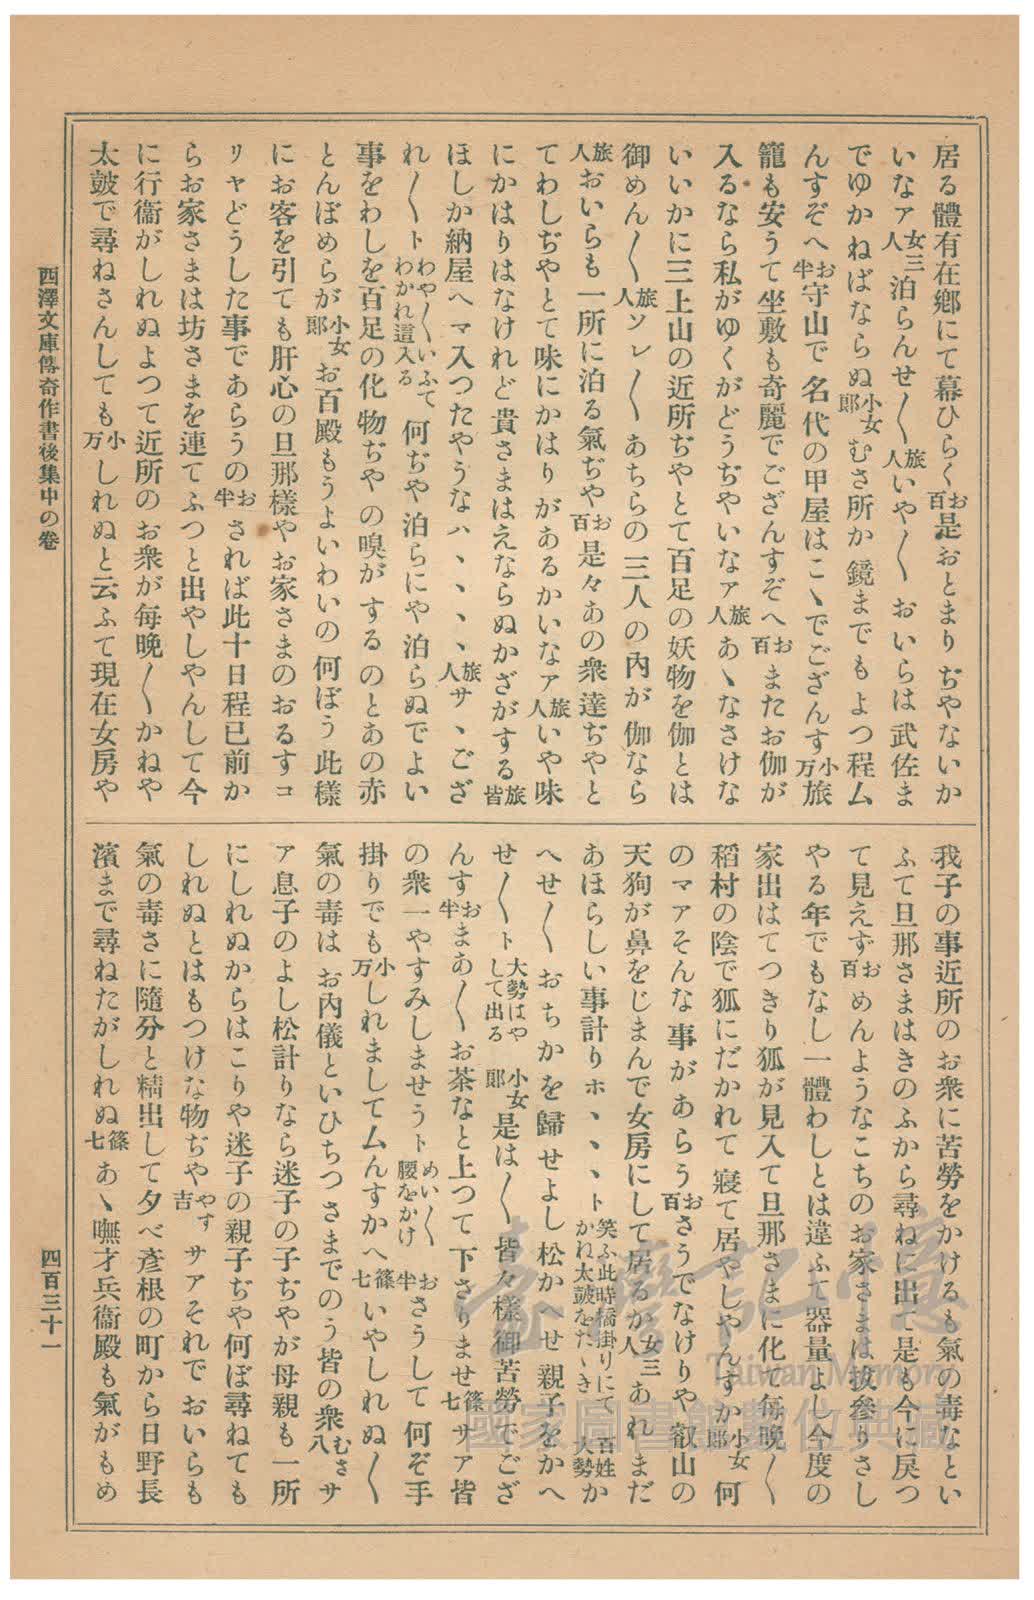 居る體有在鄕にて幕ひらくお百是おとまりぢやないか
いなァ女三人泊らんせ〳〵旅人いや〳〵おいらは武佐ま
でゆかねばならぬ小女郞むさ所か鏡までもよつ程ム
んすぞへお牛守山で名代の甲屋はこゝでござんす小万旅
籠も安うて坐敷も奇麗でござんすぞへお百またお伽が
入るなら私がゆくがどうぢやいなァ旅人あゝなさけな
いいかに三上山の近所ぢやとて百足の妖物を伽とは
御めん〳〵旅人ソレ〳〵あちらの三人の內が伽なら
旅人おいらも一所に泊る氣ぢやお百是々あの衆達ぢやと
てわしぢやとて味にかはりがあるかいなァ旅人いや味
にかはりはなけれど貴さまはえならぬかざがする旅皆
ほしか納屋へマ入つたやうなハヽヽヽ旅人サヽござ
れ〳〵トわや〳〵いふてわかれ這入る何ぢや泊らにや泊らぬでよい
事をわしを百足の化物ぢやの嗅がするのとあの赤
とんぼめらが小女郞お百殿もうよいわいの何ぼう此樣
にお客を引ても肝心の旦那樣やお家さまのおるすコ
リヤどうした事であらうのお牛されば此十日程已前か
らお家さまは坊さまを連てふつと出やしやんして今
に行衞がしれぬよつて近所のお衆が每晚〳〵かねや
太皷で尋ねさんしても小万しれぬと云ふて現在女房や
我子の事近所のお衆に苦勞をかけるも氣の毒なとい
ふて旦那さまはきのふから尋ねに出て是も今に戾つ
て見えずお百めんようなこちのお家さまは拔參りさし
やる年でもなし一體わしとは違ふて器量よし今度の
家出はてつきり狐が見入て旦那さまに化て每晚〳〵
稻村の陰で狐にだかれて寢て居やしやんすか小女郞何
のマアそんな事があらうお百さうでなけりや叡山の
天狗が鼻をじまんで女房にして居るか女三人あれまだ
あほらしい事計りホヽヽヽト笑ふ此時橋掛りにて百姓大勢かね太皷をたゝきか
へせ〳〵おちかを歸せよし松かへせ親子をかへ
せ〳〵ト大勢はやして出る小女郞是は〳〵皆々樣御苦勞でござ
んすお牛まあ〳〵お茶なと上つて下さりませ篠七サア皆
の衆一やすみしませうトめい〳〵腰をかけお牛さうして何ぞ手
掛りでも小万しれましてムんすかへ篠七いやしれぬ〳〵
氣の毒はお內儀といひちつさまでのう皆の衆むさ八サ
ア息子のよし松計りなら迷子の子ぢやが母親も一所
にしれぬからはこりや迷子の親子ぢや何ぼ尋ねても
しれぬとはもつけな物ぢややす吉サアそれでおいらも
氣の毒さに隨分と精出して夕べ彥根の町から日野長
濱まで尋ねたがしれぬ篠七あゝ嘸才兵衞殿も氣がもめ
西澤文庫傳奇作書後集中の卷
四百三十一
臺灣記憶
Taiwan Memory
國家圖書館數位典藏